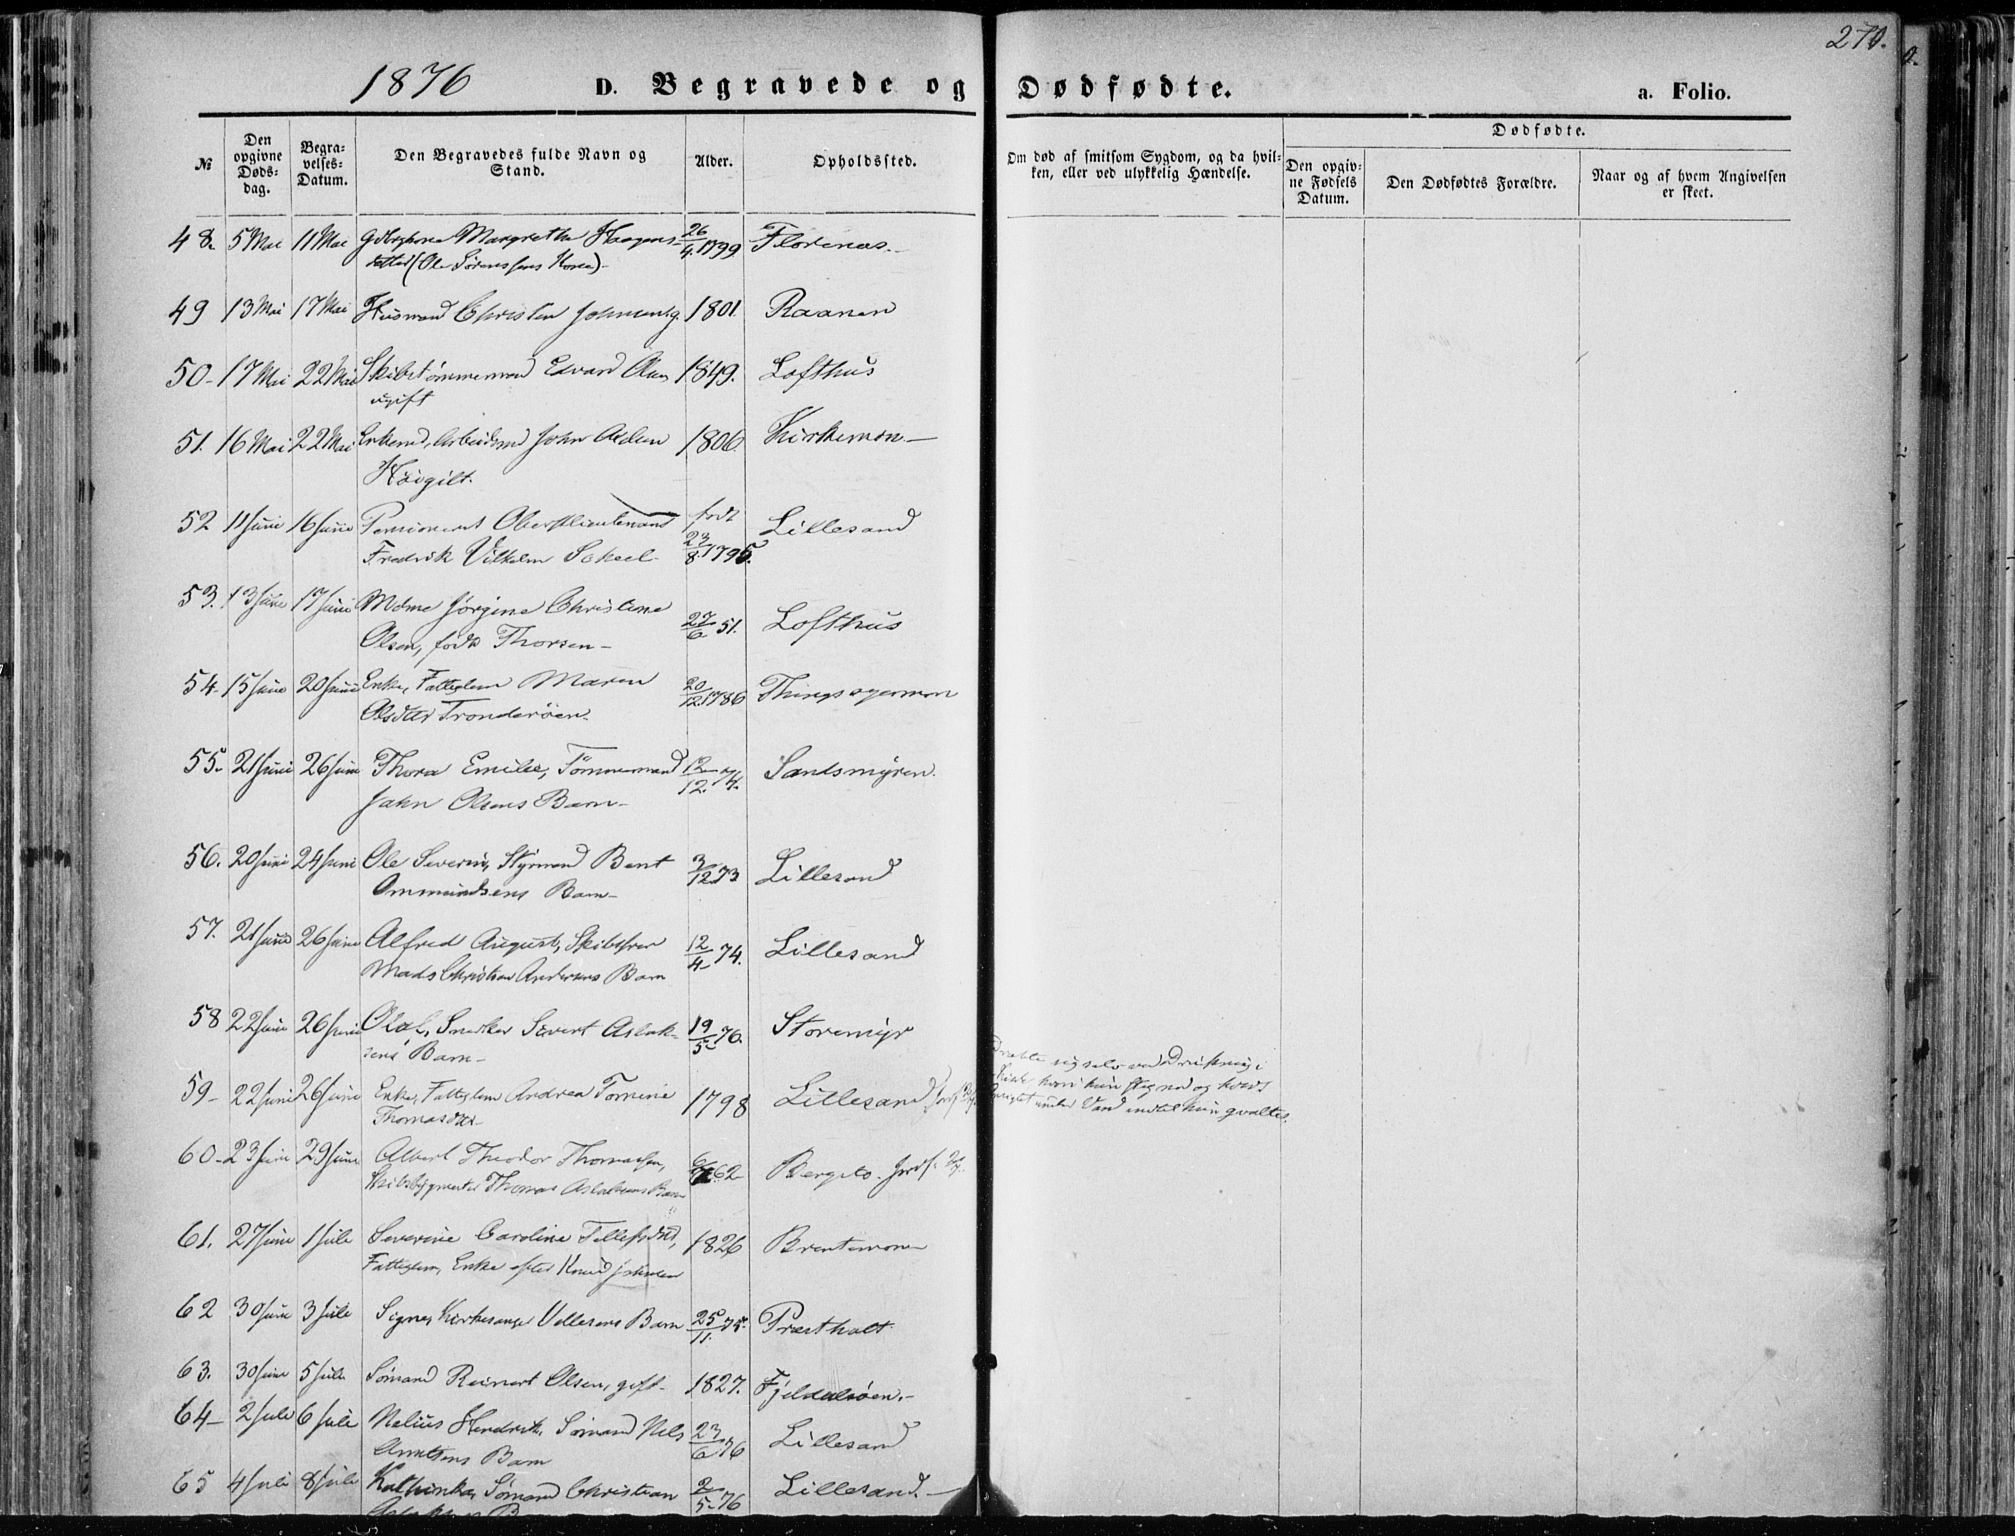 270.
1876 D. Begravede og Dødfødte. a. Folio.
№
Den opgivne Døds-dag.
Begra-velses-Datum.
Den Begravedes fulde Navn og Stand.
Alder.
Opholdssted.
Om død af smitsom Sygdom, og da hvil-
ken, eller ved ulykkelig Hændelse.
Dødfødte.
Den opgiv-
ne Fødsels
Datum.
Den Dødfødtes Forældre.
Naar og af hvem Angivelsen
er skeet.
48. 5 Mai 11 Mai Margrethe Haagens- 26/4 1799 Florenæs.
datter (Ole Sørenssens Kone)
49 13 Mai 17 Mai Husmand Christen 1801. Raanen
50- 17 Mai 22 Mai Skibstømmermand Edvard Olsen 1849. Lofthus
ugift
51. 16 Mai 22 Mai Enkemd, Arbeidsmd John 1806. Kirkemon
Høigilt.
52 11 Juni 16 Juni Pensioneret Oberstlieutenant født 23/8 1795. Lillesand
Fredrik Vilhelm Scheel
53. 13 Juni 17 Juni Mdme Jørgine Christine 27/6 51. Lofthus
Olsen, født Thorsen-
54- 15 Juni 20 Juni Enke, Fattiglem Maren 20/12 1786 Thingsagermon
Olsdtr Tronderöen.
55. 21 Juni 26 Juni Thora Emilie, Tömmermand 12/12 74. Sandsmyren.
John Olsens Barn-
56. 20 Juni 24 Juni Ole Severin, Styrmand Bent 3/12 73 Lillesand
Ommundsens Barn-
57. 21 Juni 26 Juni Alfred August, Skibsfører 12/4 74. Lillesand
Mads Christian Andersens Barn
58 22 Juni 26 Juni Olaf, Snedker Sivert Aslak- 19/5 76. Storemyr
sens Barn-
59- 22 Juni 26 Juni Enke, Fattiglem Andrea Tomine 1798 Lillesand
Thomasdtr-
sig selv ved Drukning i
hun steg ned og holdt
under Vand indtil hun qvaltes.
60- 23 Juni 29 Juni Albert Theodor Thomassen, 62 Bergsto.
Skibsbygmester Thomas Aslaksens Barn
61. 27 Juni 1 Juli Severine Caroline Tellefsdtr, 1826 Brentemoen
Fattiglem, Enke efter Knud
62 30 Juni 3 Juli Signe, Kirkesanger Vellesens Barn 25/11 75. Præstholt
63. 30 Juni 5 Juli Sömand Reinert Olsen, gift- 1827. Fjeldalsöen.-
64- 2 Juli 6 Juli Nelius Hendrik, Sömand Nils 23/6 76 Lillesand
Arntsens Barn
65 4 Juli 8 Juli Kathinka, Sömand Christian 2/5 76 Lillesand.-